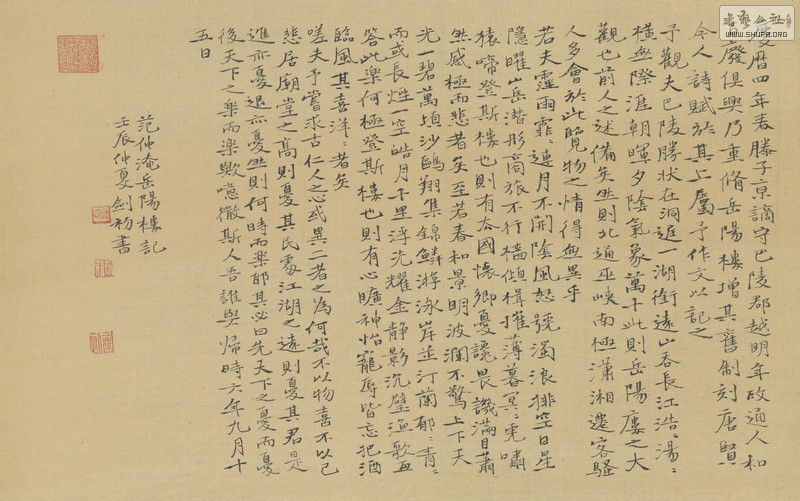 书艺公社
WWW.SHUFA.ORG
慶曆四年春滕子京謫守巴陵郡越明年政通人和
百廢俱興乃重脩岳陽樓增其舊制刻唐賢
今人詩賦於其上屬予作文以記之
予觀夫巴陵勝狀在洞庭一湖銜遠山吞長江浩〻湯〻
橫無際涯朝暉夕陰氣象萬千此則岳陽樓之大
觀也前人之述備矣然則北通巫峽南極瀟湘遷客騷
人多會於此覽物之情得無異乎
若夫霪雨霏〻連月不開陰風怒號濁浪排空日星
隱曜山岳潛形商旅不行檣傾楫摧薄暮冥〻虎嘯
猿啼登斯樓也則有去國懷鄉憂讒畏譏滿目蕭
然感極而悲者矣至若春和景明波瀾不驚上下天
光一碧萬頃沙鷗翔集錦鱗游泳岸芷汀蘭郁〻青〻
而或長煙空皓月千里浮光耀金靜影沉璧漁歌互
答此樂何極登斯樓也則有心曠神怡寵辱皆忘把酒
臨風其喜洋〻者矣
嗟夫予嘗求古仁人之心或異二者之為何哉不以物喜不以己
悲居廟堂之高則憂其民處江湖之遠則憂其君是
進亦憂退亦憂然則何時而樂耶其必曰先天下之憂而憂
後天下之樂而樂歟噫微斯人吾誰與歸時六年九月十
五日
范仲淹岳陽樓記
壬辰仲夏劍初書